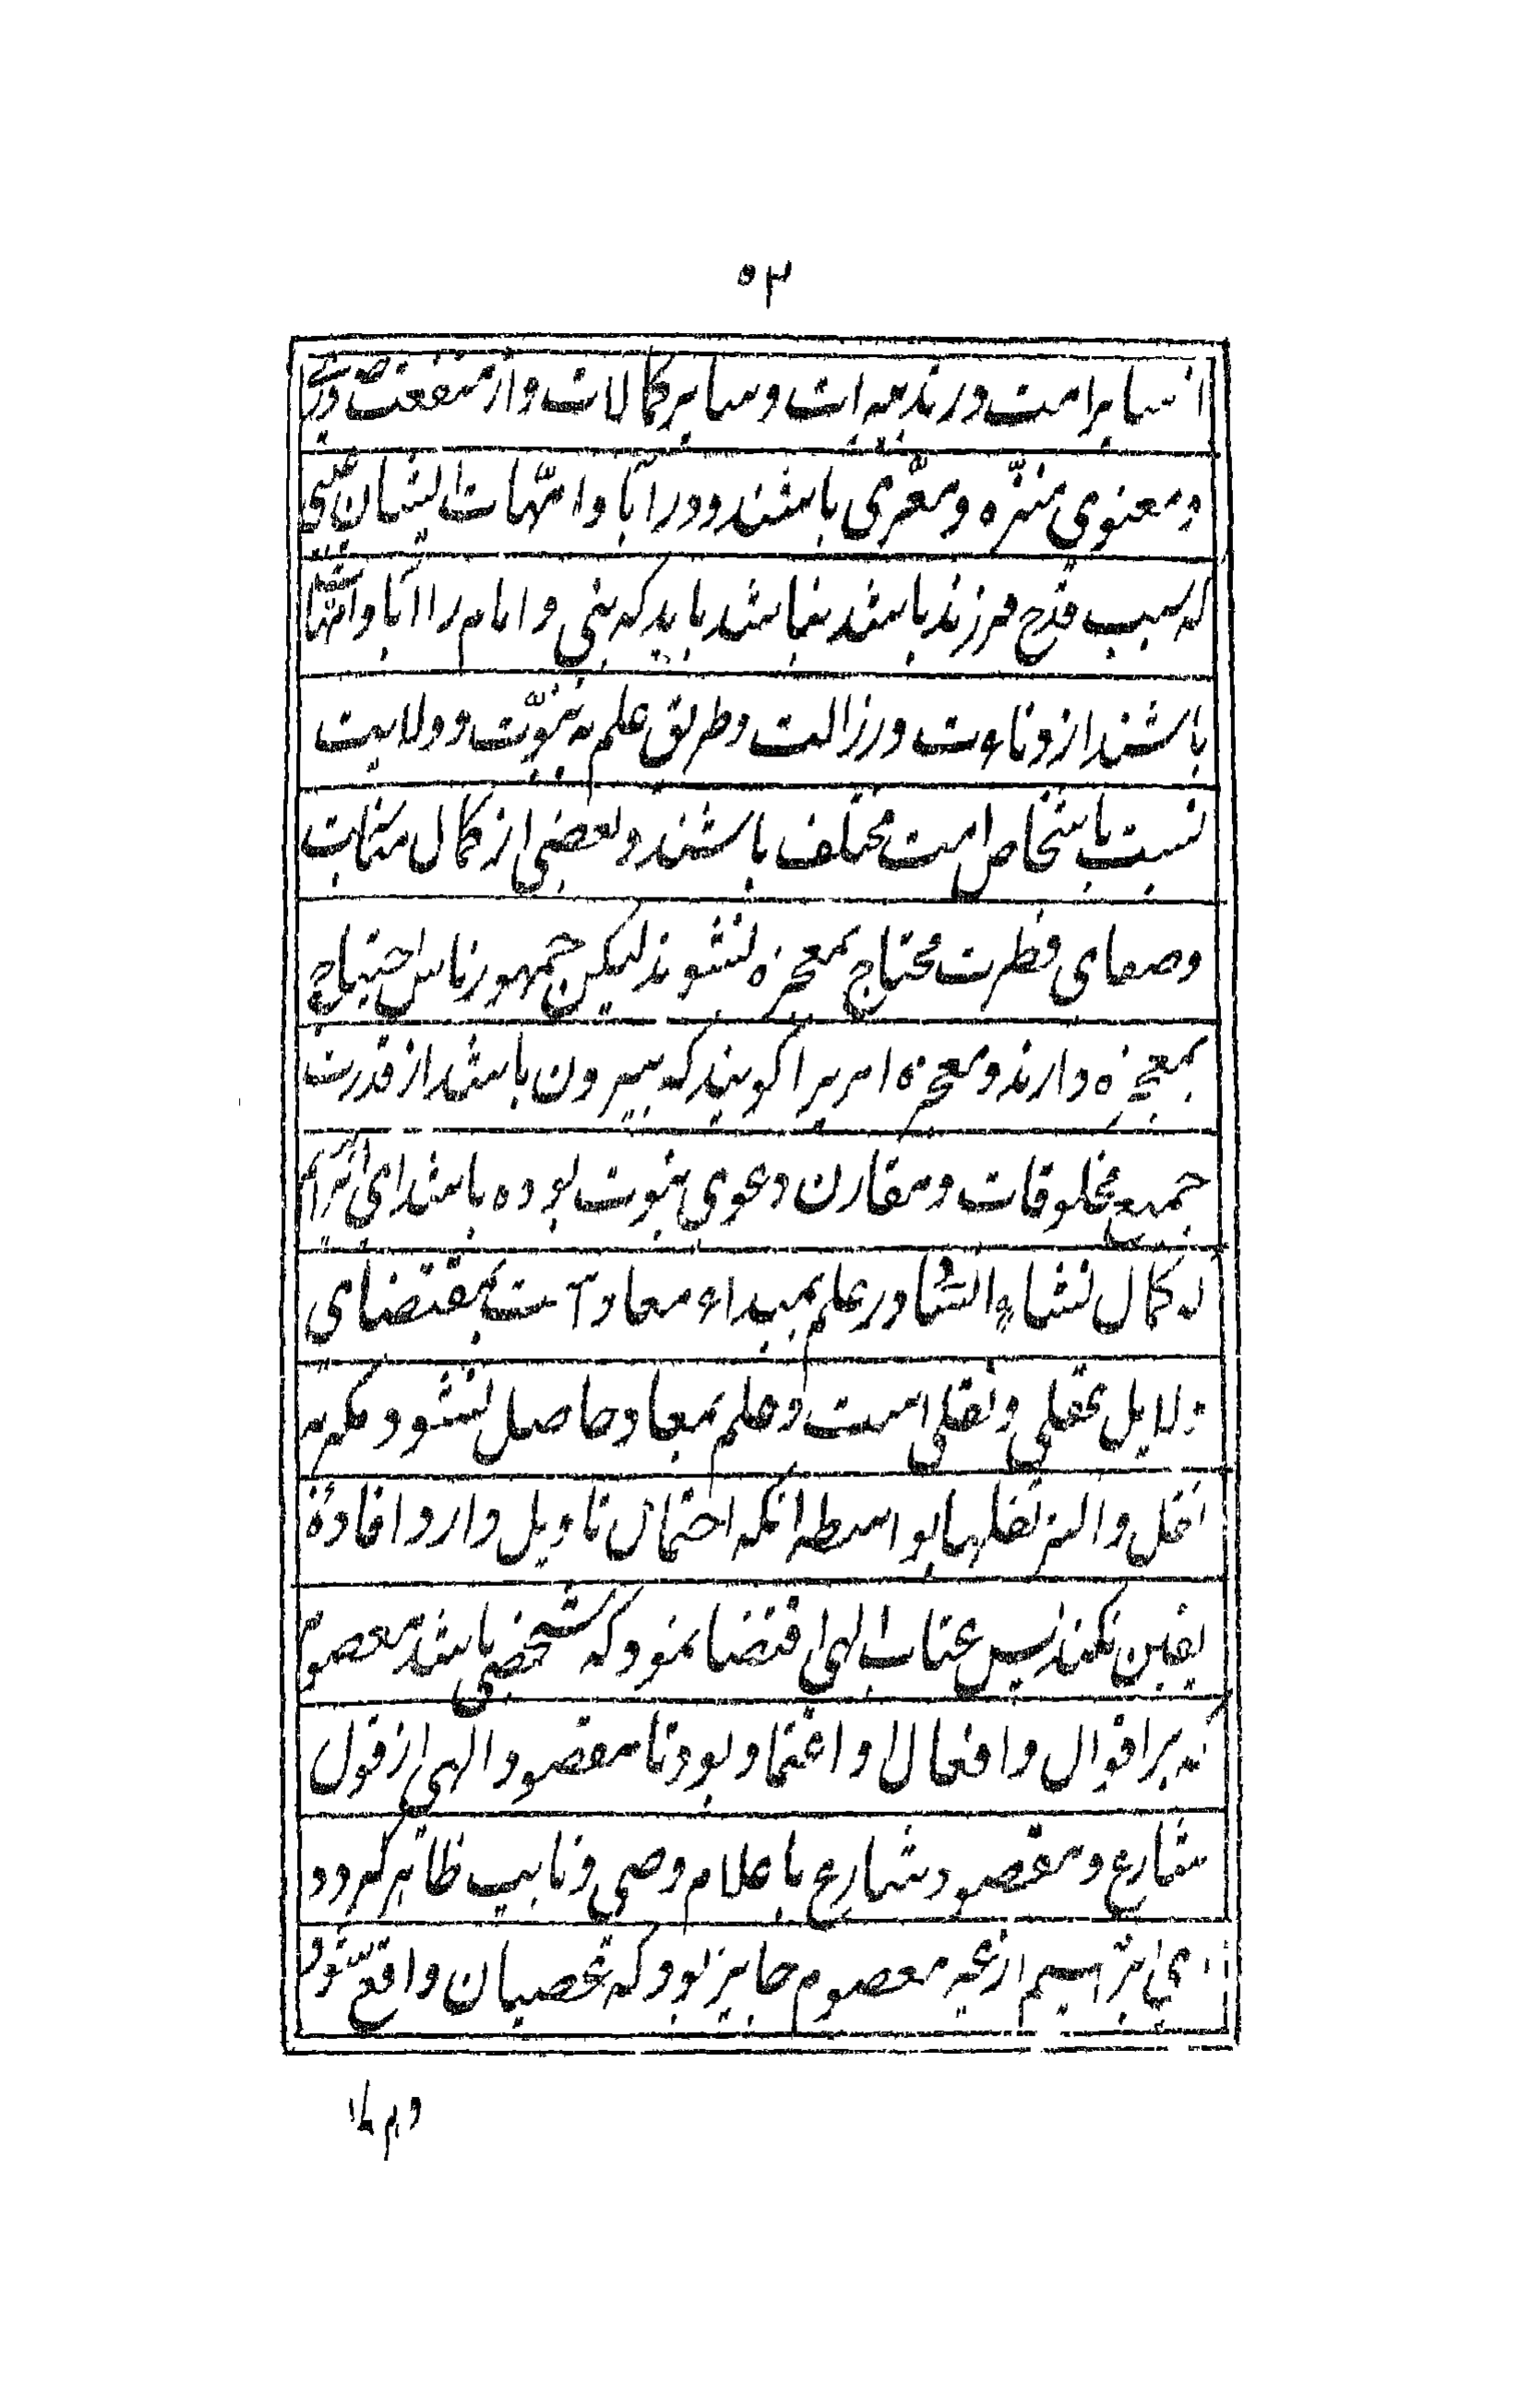 ۵۲
از سایر امت در تدبیرات و سایر کمالات و از منقصت صوری
و معنوی منزّه و معرّی باشند و در آبا و امّهات ایشان عیبی
که سبب قدح فرزند باشد نباشد باید که نبی و امام را آبا و امّهات
باشند از دناءت و رزالت و طریق علم به نبوّت و ولایت
نسبت باشخاص امت مختلف باشند و بعضی از کمال
و صفای فطرت محتاج بمعجزه نشوند لیکن جمهور ناس احتیاج
بمعجزه دارند و معجزه امریرا کویند که بیرون باشد از قدرت
جمیع مخلوقات و مقارن دعوی نبوت بوده باشد ای
که کمال نشاء انشا در علم بمبداء معاد است بمقتضای
دلایل عقلی و نقلی است و علم بمعاد حاصل نشود مکر به
نقل و اکثر نقلها بواسطه انکه احتمال تاویل دارد افادهٔ
یقین نکند پس عنایت الهی اقتضا نمود که شخصی باشد معصوم
که بر اقوال و افعال او اعتماد بود تا مقصود الهی از قول
شارع و مقصود شارع باعلام وصی و نایب ظاهر کردد
ای ابراهیم از غیر معصوم جایز بود که عصیان واقع شود